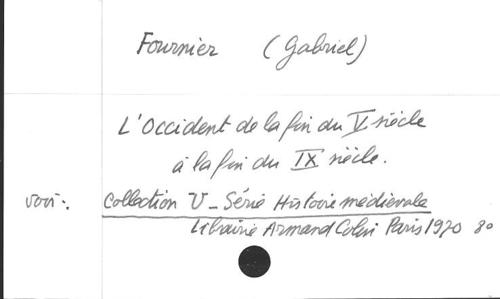 Fournier (Gabriel)
L'Occident de la fin du V siècle
à la fin du IX siècle.
voir: Collection U - Série Histoire médiévale
Librairie Armand Colin Paris 1970 80